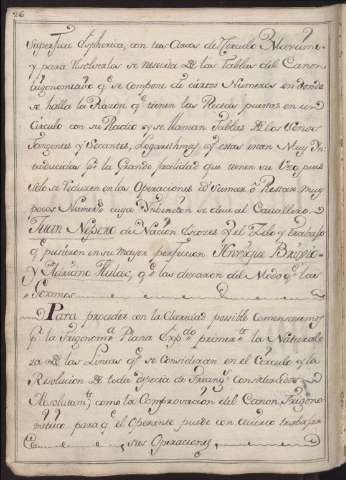 26
Superficie Espherica, con tres Arcos de Circulo Maximo
y para resolverlos se necesita de las Tablas del Canon
trigonometrico qe se compone de ciertos Numeros en donde
se halla la Razon qe tienen las Rectas puestas en un
Circulo con su Radio y se llaman Tablas de los Senos
Tangentes y Secantes, Logarithmos y estas estan Muy In
troducidas por la Grande facilidad que tienen su Uso, pues
solo se reducen en las Operaciones de Sumar o Restar muy
pocos Numeros cuya Invencion se deve al Cavallero
Juan Nepero de Nacion Escoces y el Zelo y trabajo
qe pusieron en su mayor perfeccion Henrique Brigio
y Adriano Ulac, qe las dexaron del Modo qe las
tenemos
Para proceder con la Claridad possible Comensaremos
por la Trigonoma Plana Expdo primerte la Naturale
za de las Lineas qe se Consideran en el Circulo y la
Resolucion de toda especie de Triangs Considerados
Absolutamte como la Comprovacion del Canon Trigono
metrico para qe el Operante puede con acierto trabajar
sus Operaciones